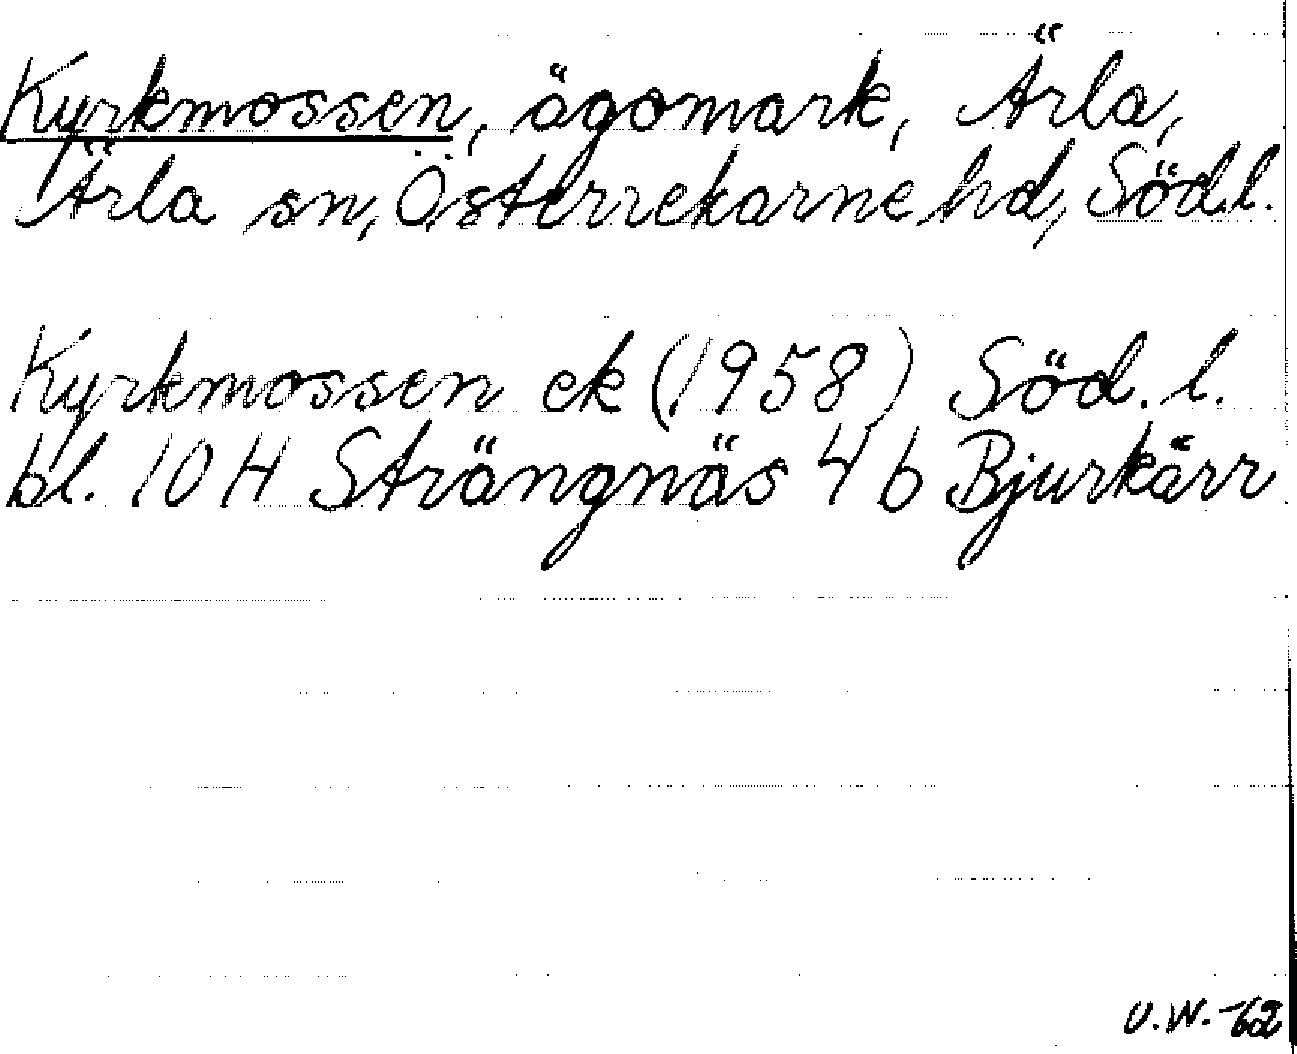 Kyrkmossen, ägomark, Ärla,
Ärla sn, Österrekarne hd, Söd.l.
Kyrkmossen ek (1958) Söd. l.
bl. 10 H Strängnäs 4 b Bjurkärr
U.W. -62